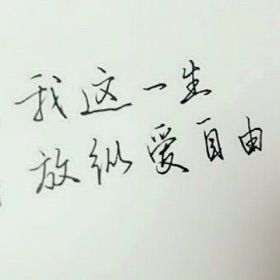 我这一生
放纵爱自由